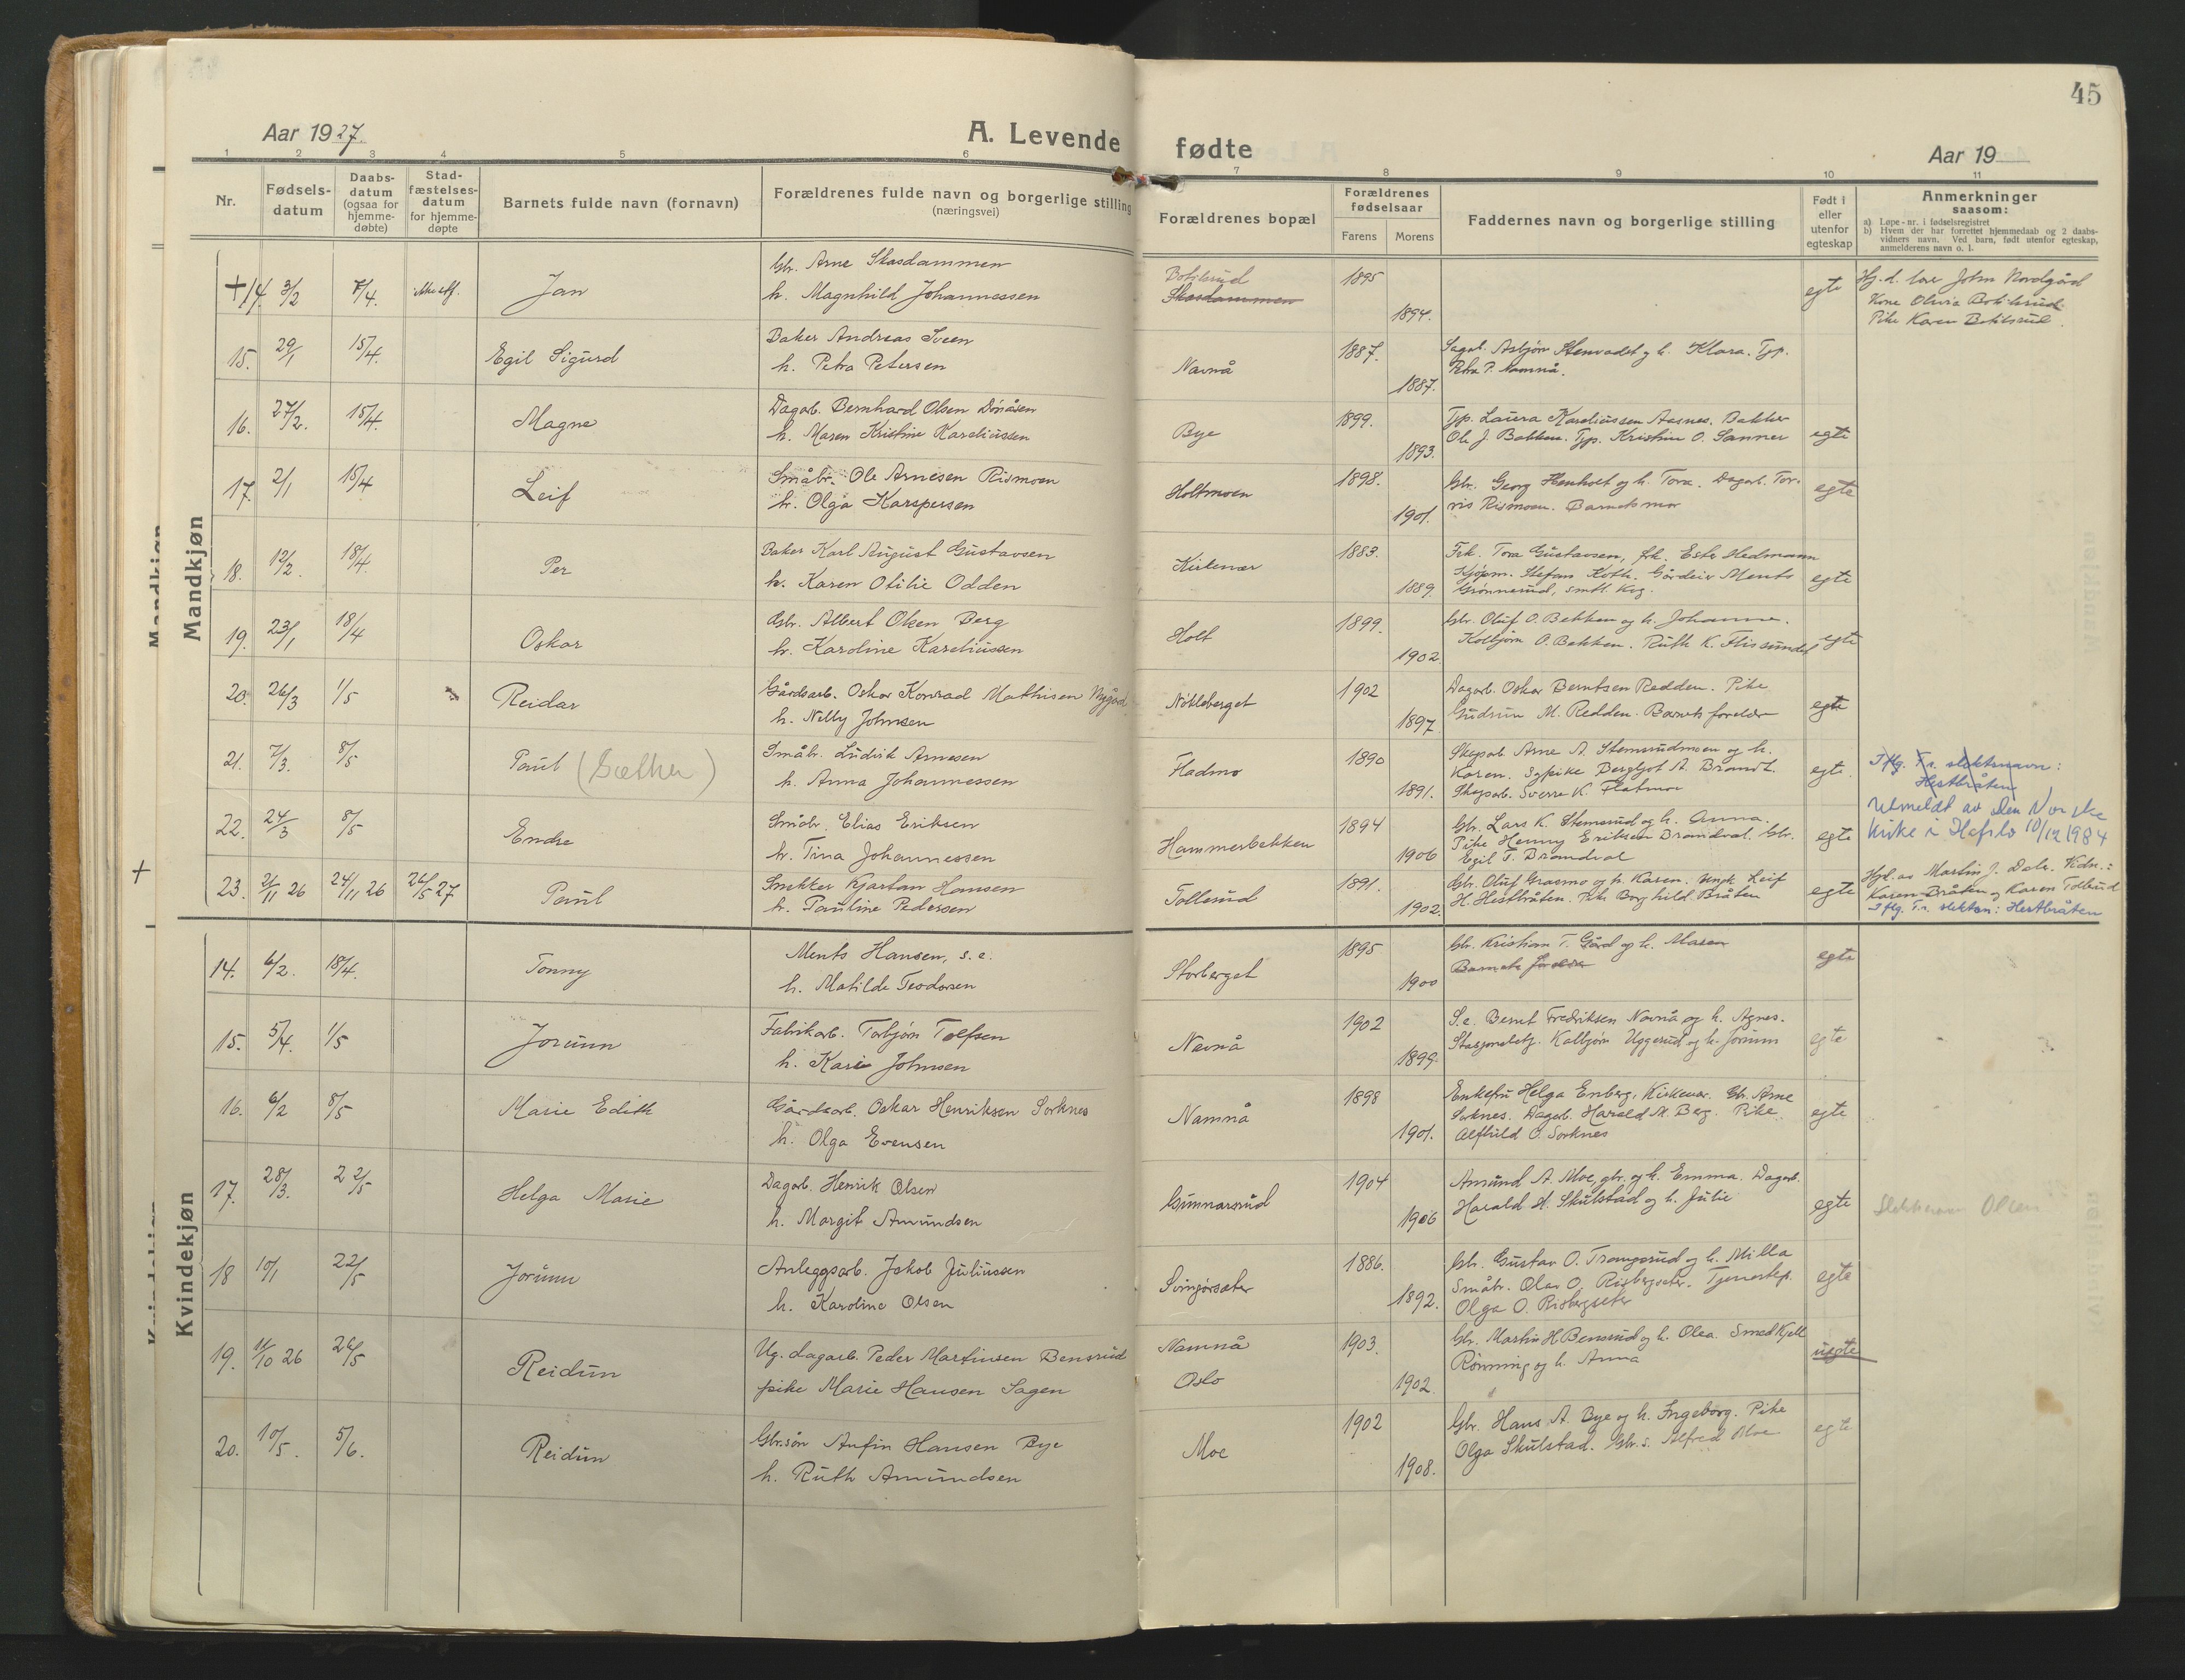 45
Aar 1927.
A. Levende fødte
Aar 19
1 2 3 4 5 6 7 8 9 10 11
Nr.
Fødsels-
datum
Daabs-
datum
(ogsaa for
hjemme-
døbte)
Stad-
fæstelses-
datum
for hjemme-
døpte
Barnets fulde navn (fornavn)
Forældrenes fulde navn og borgerlige stilling
(næringsvei)
Forældrenes bopæl
Forældrenes
fødselsaar
Farens Morens
Faddernes navn og borgerlige stilling
Født i
eller
utenfor
egteskap
Anmerkninger
saasom:
a) Løpe-nr. i fødselsregistret
b) Hvem der har forrettet hjemmedaab og 2 daabs-
vidners navn. Ved barn, født utenfor egteskap,
anmelderens navn o. l.
Mandkjøn
+14. 3/2 7/4. Jan
Gbr. Arne Skasdammen
h. Magnhild Johannessen
Botilsrud
Skasdammen
1895
1894.
egte
Hj. d. lær John Nordgård
Kone Olivia Botilsrud
Pike Karen Botilsrud.
15. 29/1 15/4. Egil Sigurd
Baker Andreas Sveen
h. Petra Petersen
Navnå
1887.
1887.
Sagarb. Asbjørn Stenvadet og h. Klara. Tjp.
P. Namnå.
16. 27/2. 15/4. Magne
Dagarb. Bernhard Olsen Dønåsen
h. Maren Kristine Kareliussen
Bye
1899.
1893.
Tjp. Laura Kareliussen Aasnes. Bakker
Ole J. Bakken. Tjp. Kristine O. Sanner
egte
17. 2/1 15/4 Leif
Småbr. Ole Arnesen Rismoen
h. Olga Karspersen
Holtmoen
1898.
1901.
Gbr. Georg Henholt og h. Tora. Dagarb. Tor-
vis Rismoen. Barnets mor
egte
18. 12/2. 18/4. Per
Baker Karl August Gustavsen
h. Karen Otilie Odden
Kirkenær
1883.
1889.
Frk. Tora Gustavsen, frk. Ester Hedmann
Kjøpm. Stefan Koth. Gårdeier Ments
Grønnerud, smtl. Kvg.
egte
19. 23/1 18/4 Oskar
Gbr. Albert Olsen Berg
h. Karoline Kareliussen
Holt
1899.
1902.
Gbr. Oluf O. Bekken og h. Johanne.
Kolbjørn O. Bekken. Ruth K. Flissundet
egte
20. 26/3 1/5 Reidar
Gårdsarb. Oskar Konrad Mathisen Nygård
h. Nelly Johnsen
Nøkleberget
1902
1897.
Dagarb. Oskar Berntsen Redden. Pike
Gudrun M. Redden. Barnets foreldre
egte
21. 7/3. 8/5 Paul (Sæther)
Småbr. Ludvik Arnesen
h. Anna Johannessen
Fladmo
1890
1891.
Skogsarb. Arne A. Stemsrudmoen og h.
Karen. Sypike Bergljot A. Brandt.
Skogsarb. Sverre K. Flatmoe
egte.
Iflg. F.r. slektsnavn:
Hestbråten
Utmeldt av den Norske
kirke i Hafslo 10/12 1984
22. 24/3 8/5 Endre
Småbr. Elias Eriksen
h. Tina Johannessen
Hammerbekken
1894
1906
Gbr. Lars K. Stemsrud og h. Anna.
Pike Henny Eriksen Brandval. Gbr.
Egil T. Brandval
egte
+
23. 21/11 26 24/11 26 26/5 27 Paul
Snekker Kjartan Hansen
h. Pauline Pedersen
Tollerud
1891.
1902.
Gbr. Oluf Grasmo og h. Karen. Leif
H. Hestbråten. Pike Borghild Bråten
egte
Hjd. av Martin J. Dale. Vidn.:
Karen Bråten og Karen Tollerud
Iflg. F.r. slektsn: Hestbråten
Kvindekjøn
14. 6/2. 18/4. Tonny
Ments Hansen, s.e.
h. Matilde Teodorsen
Storberget
1895
1900
Gbr. Kristian T. Gård og h. Maren
Barnets foreldre
egte
15. 5/4. 1/5 Jorunn
Fabrikarb. Torbjørn Tolfsen
h. Kari Johnsen
Navnå
1902
1899.
S.e. Bernt Fredriksen Navnå og h. Agnes.
Stasjonsbetj. Kolbjørn Uggerud og h. Jorunn
egte
16. 6/2 8/5 Marie Edith
Gårdsarb. Oskar Henriksen Sorknes
h. Olga Evensen
Namnå
1898
1901.
Enkefru Helga Enberg, Kirkenær. Gbr. Arne
Sorknes. Dagarb. Harald M. Berg. Pike
Alfhild O. Sorknes
egte
17. 28/3. 22/5 Helga Marie
Dagarb. Henrik Olsen
h. Margit Amundsen
Gunnarsrud
1904
1906
Amund A. Moe, gbr. og h. Emma. Dagarb.
Harald H. Skulstad og h. Julie
egte
Slektsnavn Olsen
18 10/1 22/5 Jorunn
Anleggsarb. Jakob Juliussen
h. Karoline Olsen
Svingørsæter
1886.
1892.
Gbr. Gustav O. Trangsrud og h. Milla
Småbr. Olav O. Risbergseter. Tjenestep.
Olga O. Risbergseter
egte
19. 11/10 26 26/5 Reidun
Ug. dagarb. Peder Martinsen Bensrud
pike Marie Hansen Sagen
Namnå
Oslo
1903.
1902.
Gbr. Martin H. Bensrud og h. Olea. Smed Kjell
Rønning og h. Anna
uegte
20. 10/5. 5/6. Reidun
Gbr.søn Anfin Hansen Bye
h. Ruth Amundsen
Moe
1902
1908.
Gbr. Hans A. Bye og h. Ingeborg. Pike
Olga Skulstad. Gbr.s. Alfred Moe
egte